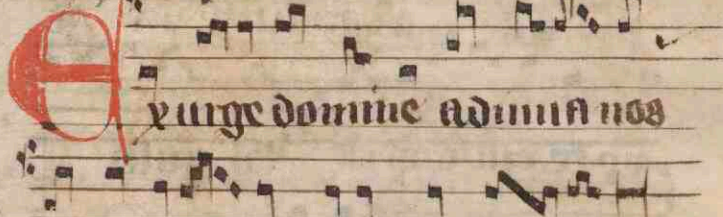 Exurge domine adiuva nos